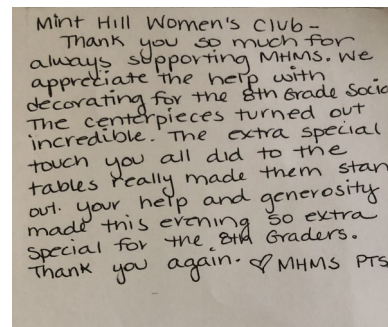 Mint Hill Women's Club -
Thank you so much for
always supporting MHMS. We
appreciate the help with
decorating for the 8th Grade Socia
The centerpieces turned out
incredible. The extra special
touch you all did to the
tables really made them stan
out. Your help and generosity
made this evening so extra
special for the 8th Graders.
Thank you again. ♡ MHMS PTS